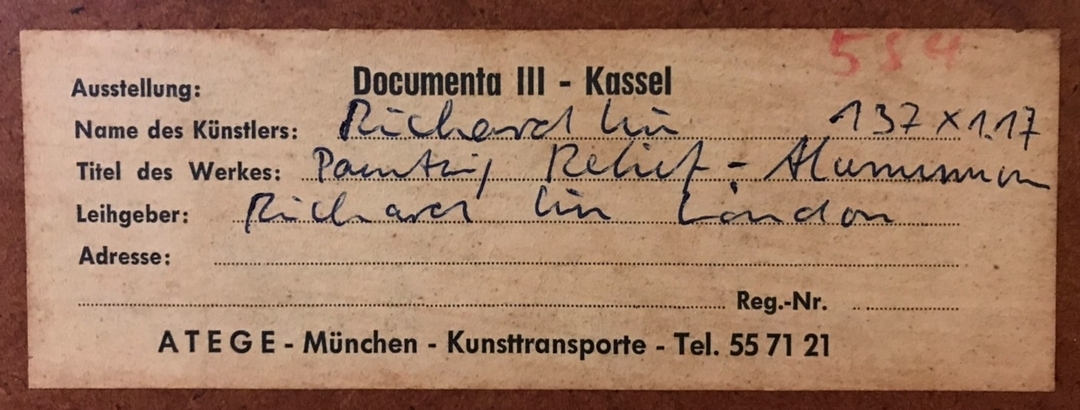 554
Ausstellung: Documenta III - Kassel
Name des Künstlers: Richard Lin 137 x 1.17
Titel des Werkes: Painting Relief - Aluminium
Leihgeber: Richard Lin London
Adresse:
Reg.-Nr.
ATEGE - München - Kunsttransporte - Tel. 55 71 21